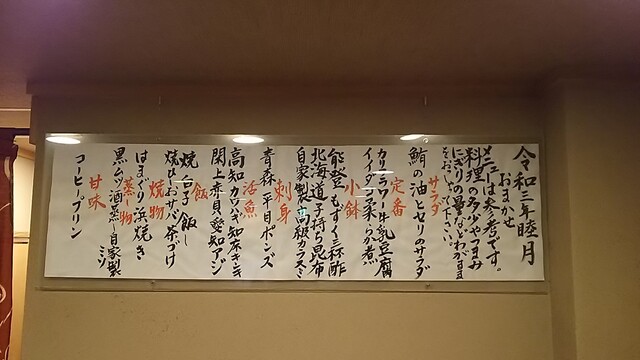 令和三年睦月
おまかせ
メニューは参考です。
料理の多少やつまみ
にぎりの量などわがまま
そおっと下さい。
サラダ
鮪の油とセリのサラダ
定番
カリフラワー牛乳豆腐
イイダコ柔らか煮
小鉢
能登もずく三杯酢
北海道子持ち昆布
自家製高級カラスミ
刺身
青森平目ポンズ
活魚
高知カワハギ知床キンキ
閖上赤貝愛知アジ
飯
焼白子飯し
焼ひもおサバ茶づけ
焼物
はまぐり浜焼き
蒸し物
黒ムツ酒蒸し自家製ミソ
甘味
コーヒープリン